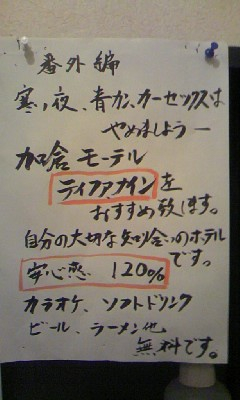 番外編
寒い夜、青カン、カーセックスは
やめましょうー
加倉 モーテル
ティファナインを
おすすめ致します。
自分の大切な知り合いのホテル
です。
安心感 120%
カラオケ、ソフトドリンク
ビール、ラーメン他
無料です。